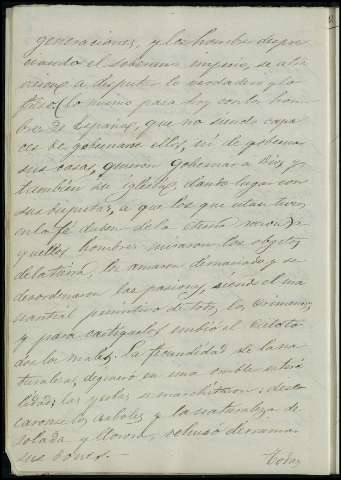 generaciones, y los hombres despre
ciando el soberano imperio, se atre
vieron a disputar lo verdadero y lo
falso (lo mismo pasa hoy con los hom
bres de España, que no siendo capa
ces de gobernarse ellos, ni de gobernar
sus casas, quieren gobernar a Dios y
tambien su iglesia, dando lugar con
sus disputas, a que los que estan tivios
en la fé duden de la eterna
quellos hombres miraron los objetos
de la tierra, los amaron demasiado y se
desordenaron las pasiones, siendo el ma
nantial primitivo de todos los crimenes;
y para castigarlos embió el cielo to
dos los males. La fecundidad de la na
turaleza, degeneró en una orrible esteri
lidad; las yerbas se marchitaron, desta
caronse los arboles, y la naturaleza de
solada y llorosa, rehusó derramar
sus bones.—
todos